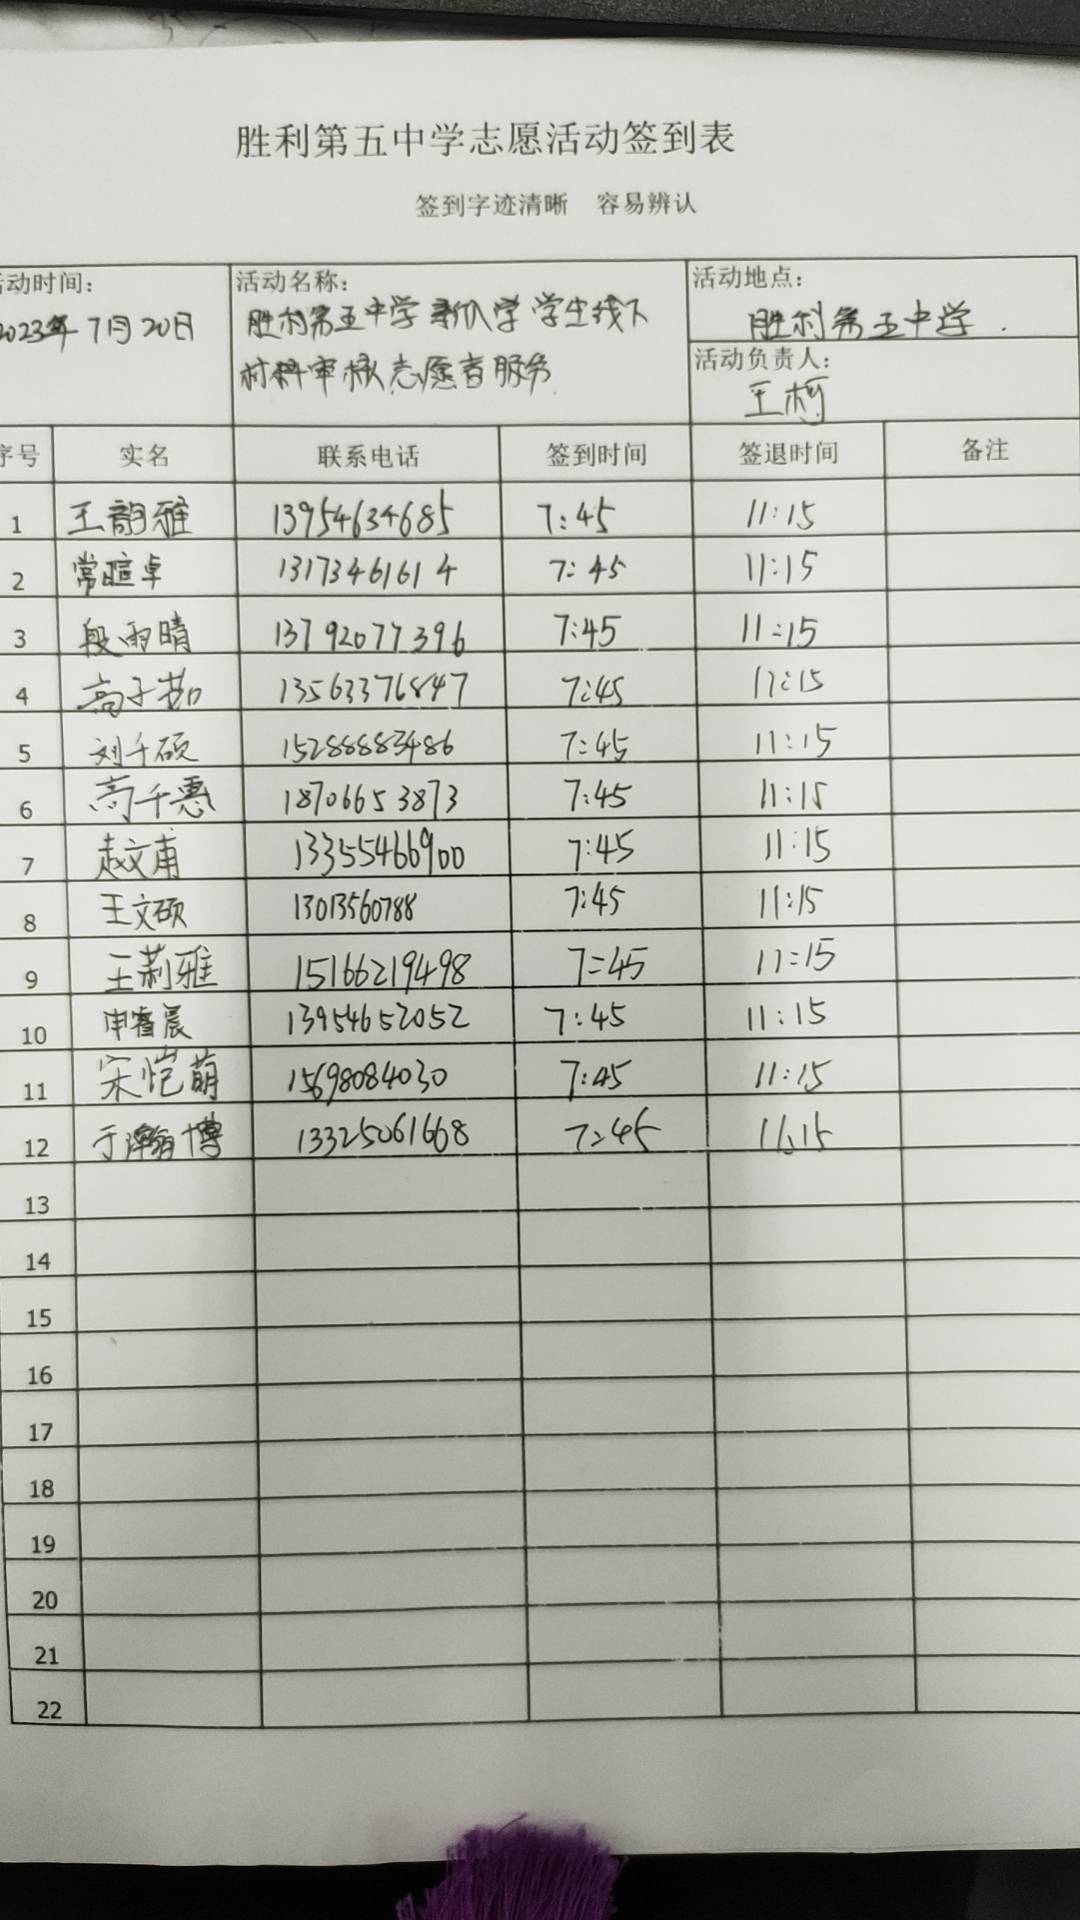 胜利第五中学志愿活动签到表
签到字迹清晰 容易辨认
活动时间:
2023年7月20日
活动名称:
胜利第五中学新入学学生线下
材料审核志愿者服务
活动地点:
胜利第五中学.
活动负责人:
王柯
序号 实名 联系电话 签到时间 签退时间 备注
1 王韵雅 13954634685 7:45 11:15
2 常暄卓 13173461614 7:45 11:15
3 段雨晴 13792077396 7:45 11:15
4 高子茹 13563376847 7:45 11:15
5 刘千硕 15288883486 7:45 11:15
6 高千惠 18706653873 7:45 11:15
7 赵文甫 13355466900 7:45 11:15
8 王文硕 13013560788 7:45 11:15
9 王莉雅 15166219498 7:45 11:15
10 申睿晨 13954652052 7:45 11:15
11 宋恺萌 15698084030 7:45 11:15
12 于瀚博 13325061668 7:45 11:15
13
14
15
16
17
18
19
20
21
22